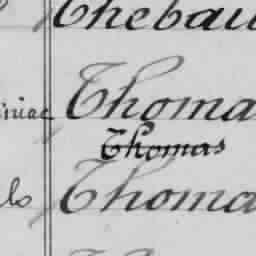 Thebau
iniac Thoma
Thomas
ls Thoma